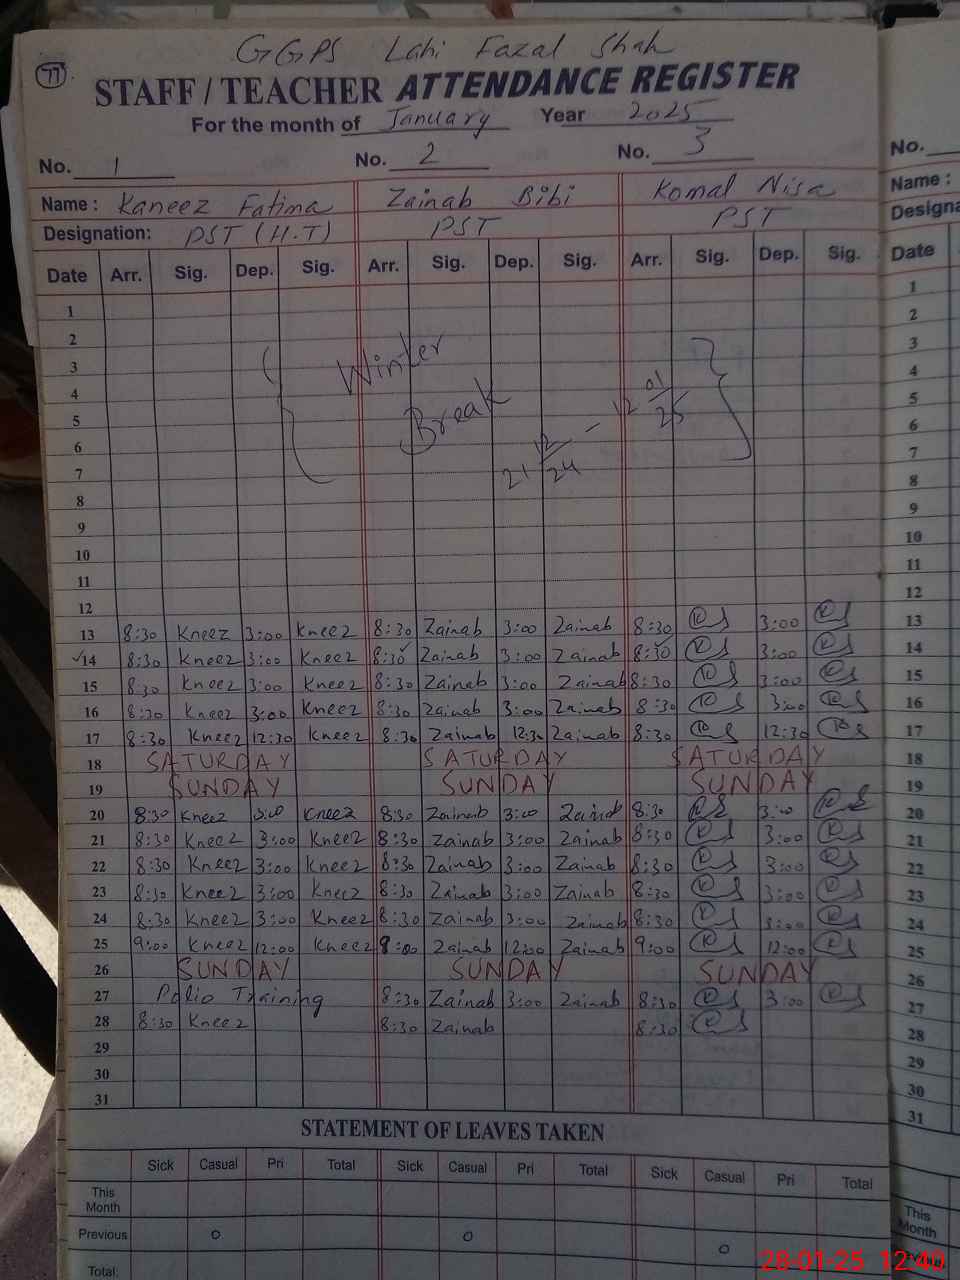 77
GGPS Lahi Fazal Shah
STAFF / TEACHER ATTENDANCE REGISTER
For the month of January Year 2025
No. 1 No. 2 No. 3 No.
Name : Kaneez Fatima Zainab Bibi Komal Nisa Name :
Designation: PST (H.T) PST PST Designa
Date Arr. Sig. Dep. Sig. Arr. Sig. Dep. Sig. Arr. Sig. Dep. Sig. Date
1 1
2 2
3 3
4 4
5 5
6 6
7 7
Winter
Break
21 12/24 – 12 01/25
8 8
9 9
10 10
11 11
12 12
13 8:30 Kneez 3:00 Kneez 8:30 Zainab 3:00 Zainab 8:30 3:00 13
14 8:30 Kneez 3:00 Kneez 8:30 Zainab 3:00 Zainab 8:30 3:00 14
15 8:30 Kneez 3:00 Kneez 8:30 Zainab 3:00 Zainab 8:30 3:00 15
16 8:30 Kneez 3:00 Kneez 8:30 Zainab 3:00 Zainab 8:30 3:00 16
17 8:30 Kneez 12:30 Kneez 8:30 Zainab 12:30 Zainab 8:30 12:30 17
18 SATURDAY SATURDAY SATURDAY 18
19 SUNDAY SUNDAY SUNDAY 19
20 8:30 Kneez 3:00 Kneez 8:30 Zainab 3:00 Zainab 8:30 3:00 20
21 8:30 Kneez 3:00 Kneez 8:30 Zainab 3:00 Zainab 8:30 3:00 21
22 8:30 Kneez 3:00 Kneez 8:30 Zainab 3:00 Zainab 8:30 3:00 22
23 8:30 Kneez 3:00 Kneez 8:30 Zainab 3:00 Zainab 8:30 3:00 23
24 8:30 Kneez 3:00 Kneez 8:30 Zainab 3:00 Zainab 8:30 3:00 24
25 9:00 Kneez 12:00 Kneez 9:00 Zainab 12:00 Zainab 9:00 12:00 25
26 SUNDAY SUNDAY SUNDAY 26
27 Polio Training 8:30 Zainab 3:00 Zainab 8:30 3:00 27
28 8:30 Kneez 8:30 Zainab 8:30 28
29 29
30 30
31 31
STATEMENT OF LEAVES TAKEN
Sick Casual Pri Total Sick Casual Pri Total Sick Casual Pri Total
This Month This Month
Previous 0 0 0
Total:
28-01-25 12:40